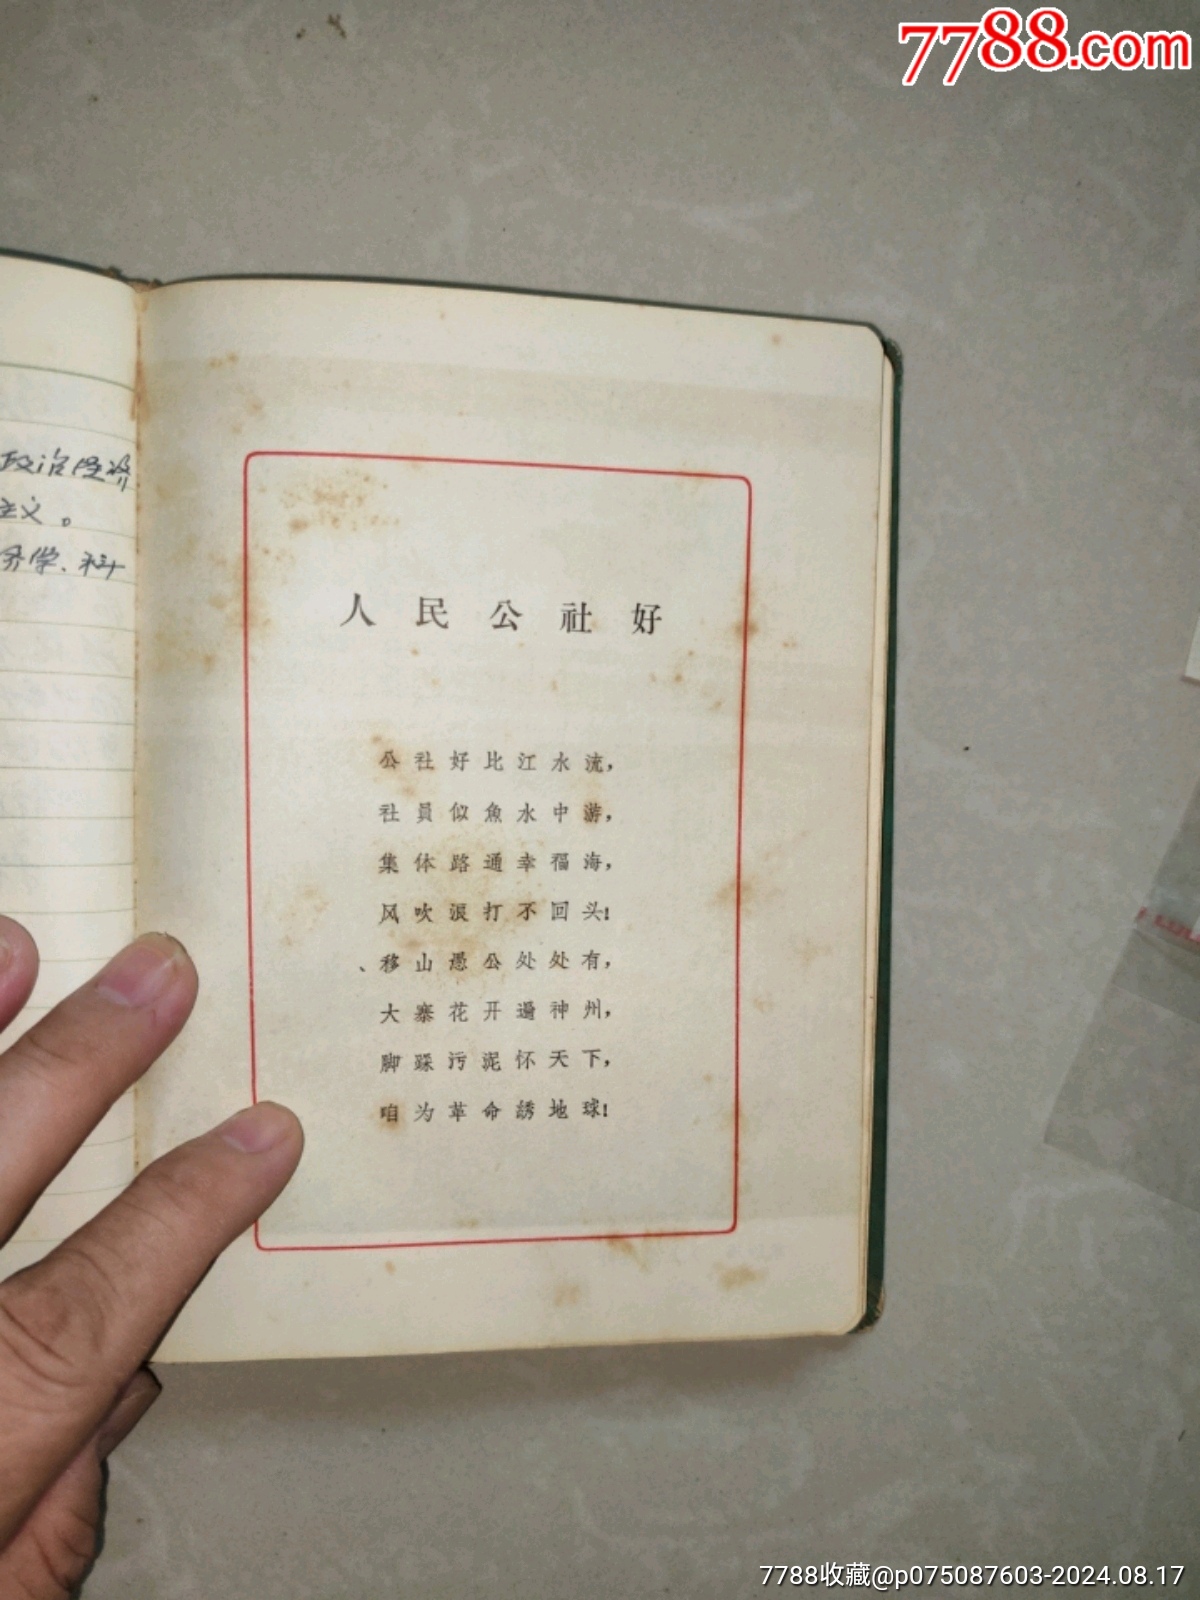 7788.com
政治经济
主义。
济学、科
人民公社好
公社好比江水流,
社員似魚水中游,
集体路通幸福海,
风吹浪打不回头!
移山愚公处处有,
大寨花开遍神州,
脚踩污泥怀天下,
咱为革命誘地球!
7788收藏@p075087603-2024.08.17